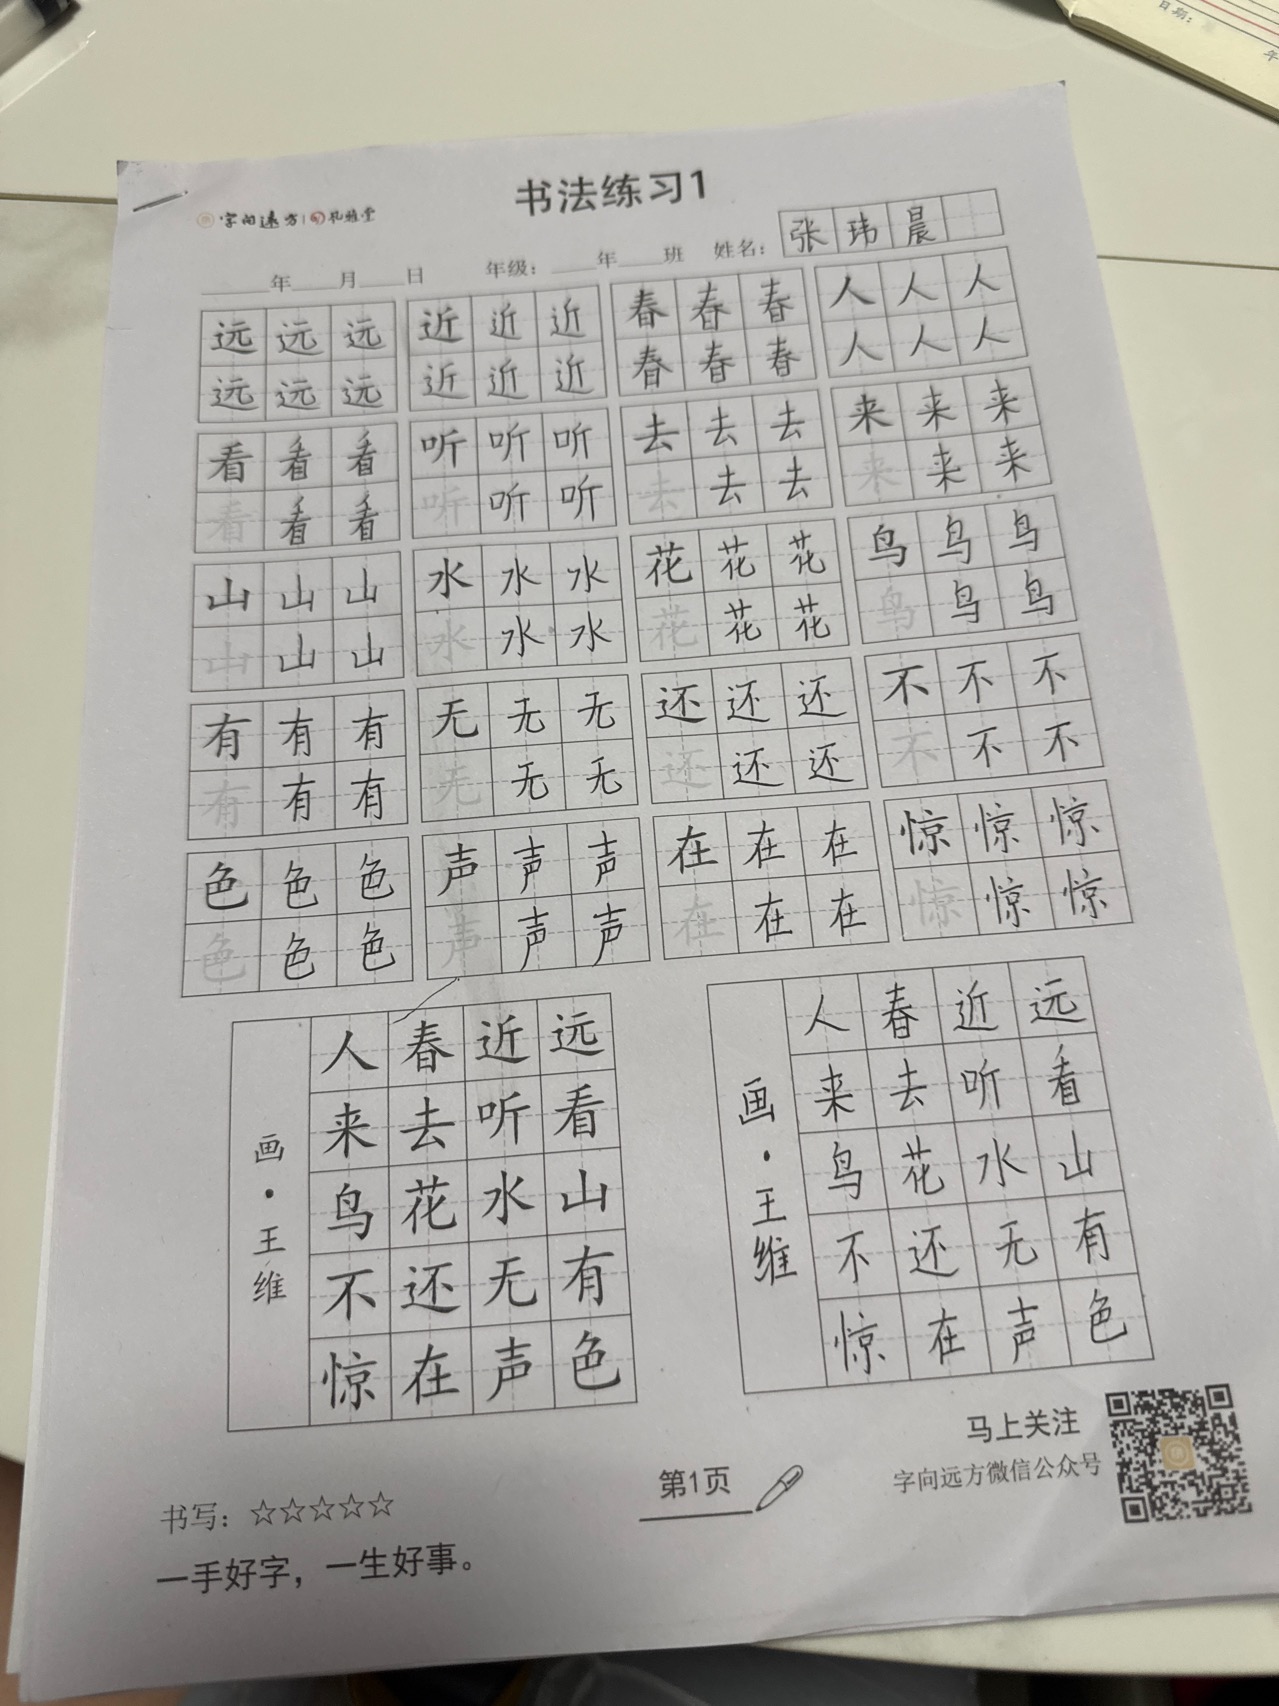 书法练习1
字向远方 孔雅堂
年 月 日 年级： 年 班 姓名：张玮晨
远远远 近近近 春春春 人人人
远远远 近近近 春春春 人人人
看看看 听听听 去去去 来来来
看看看 听听听 去去去 来来来
山山山 水水水 花花花 鸟鸟鸟
山山山 水水水 花花花 鸟鸟鸟
有有有 无无无 还还还 不不不
有有有 无无无 还还还 不不不
色色色 声声声 在在在 惊惊惊
色色色 声声声 在在在 惊惊惊
远看山有色
近听水无声
春去花还在
人来鸟不惊
画·王维
远看山有色
近听水无声
春去花还在
人来鸟不惊
画·王维
书写：☆☆☆☆☆
一手好字，一生好事。
第1页
马上关注
字向远方微信公众号
日期：
年